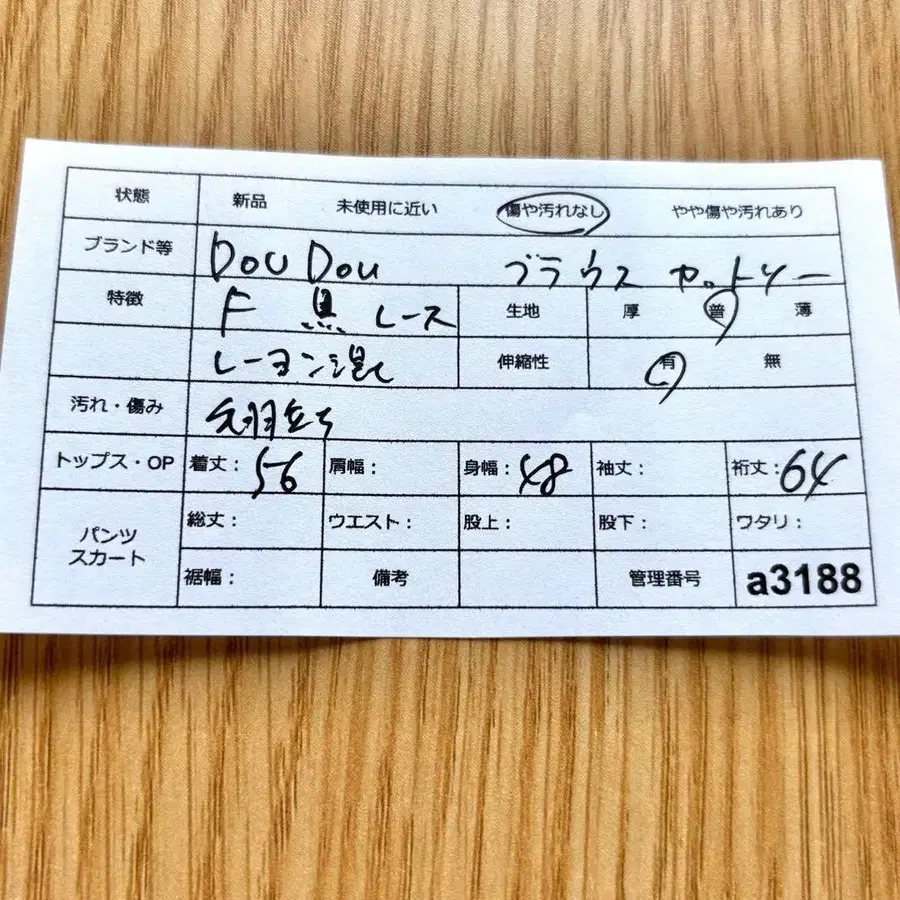 状態 新品 未使用に近い 傷や汚れなし やや傷や汚れあり
ブランド等 DOU DOU ブラウス カットソー
特徴 F 黒 レース 生地 厚 普 薄
レーヨン混 伸縮性 有 無
汚れ・傷み 毛羽立ち
トップス・OP 着丈：56 肩幅： 身幅：48 袖丈： 裄丈：64
パンツ スカート 総丈： ウエスト： 股上： 股下： ワタリ：
裾幅： 備考 管理番号 a3188